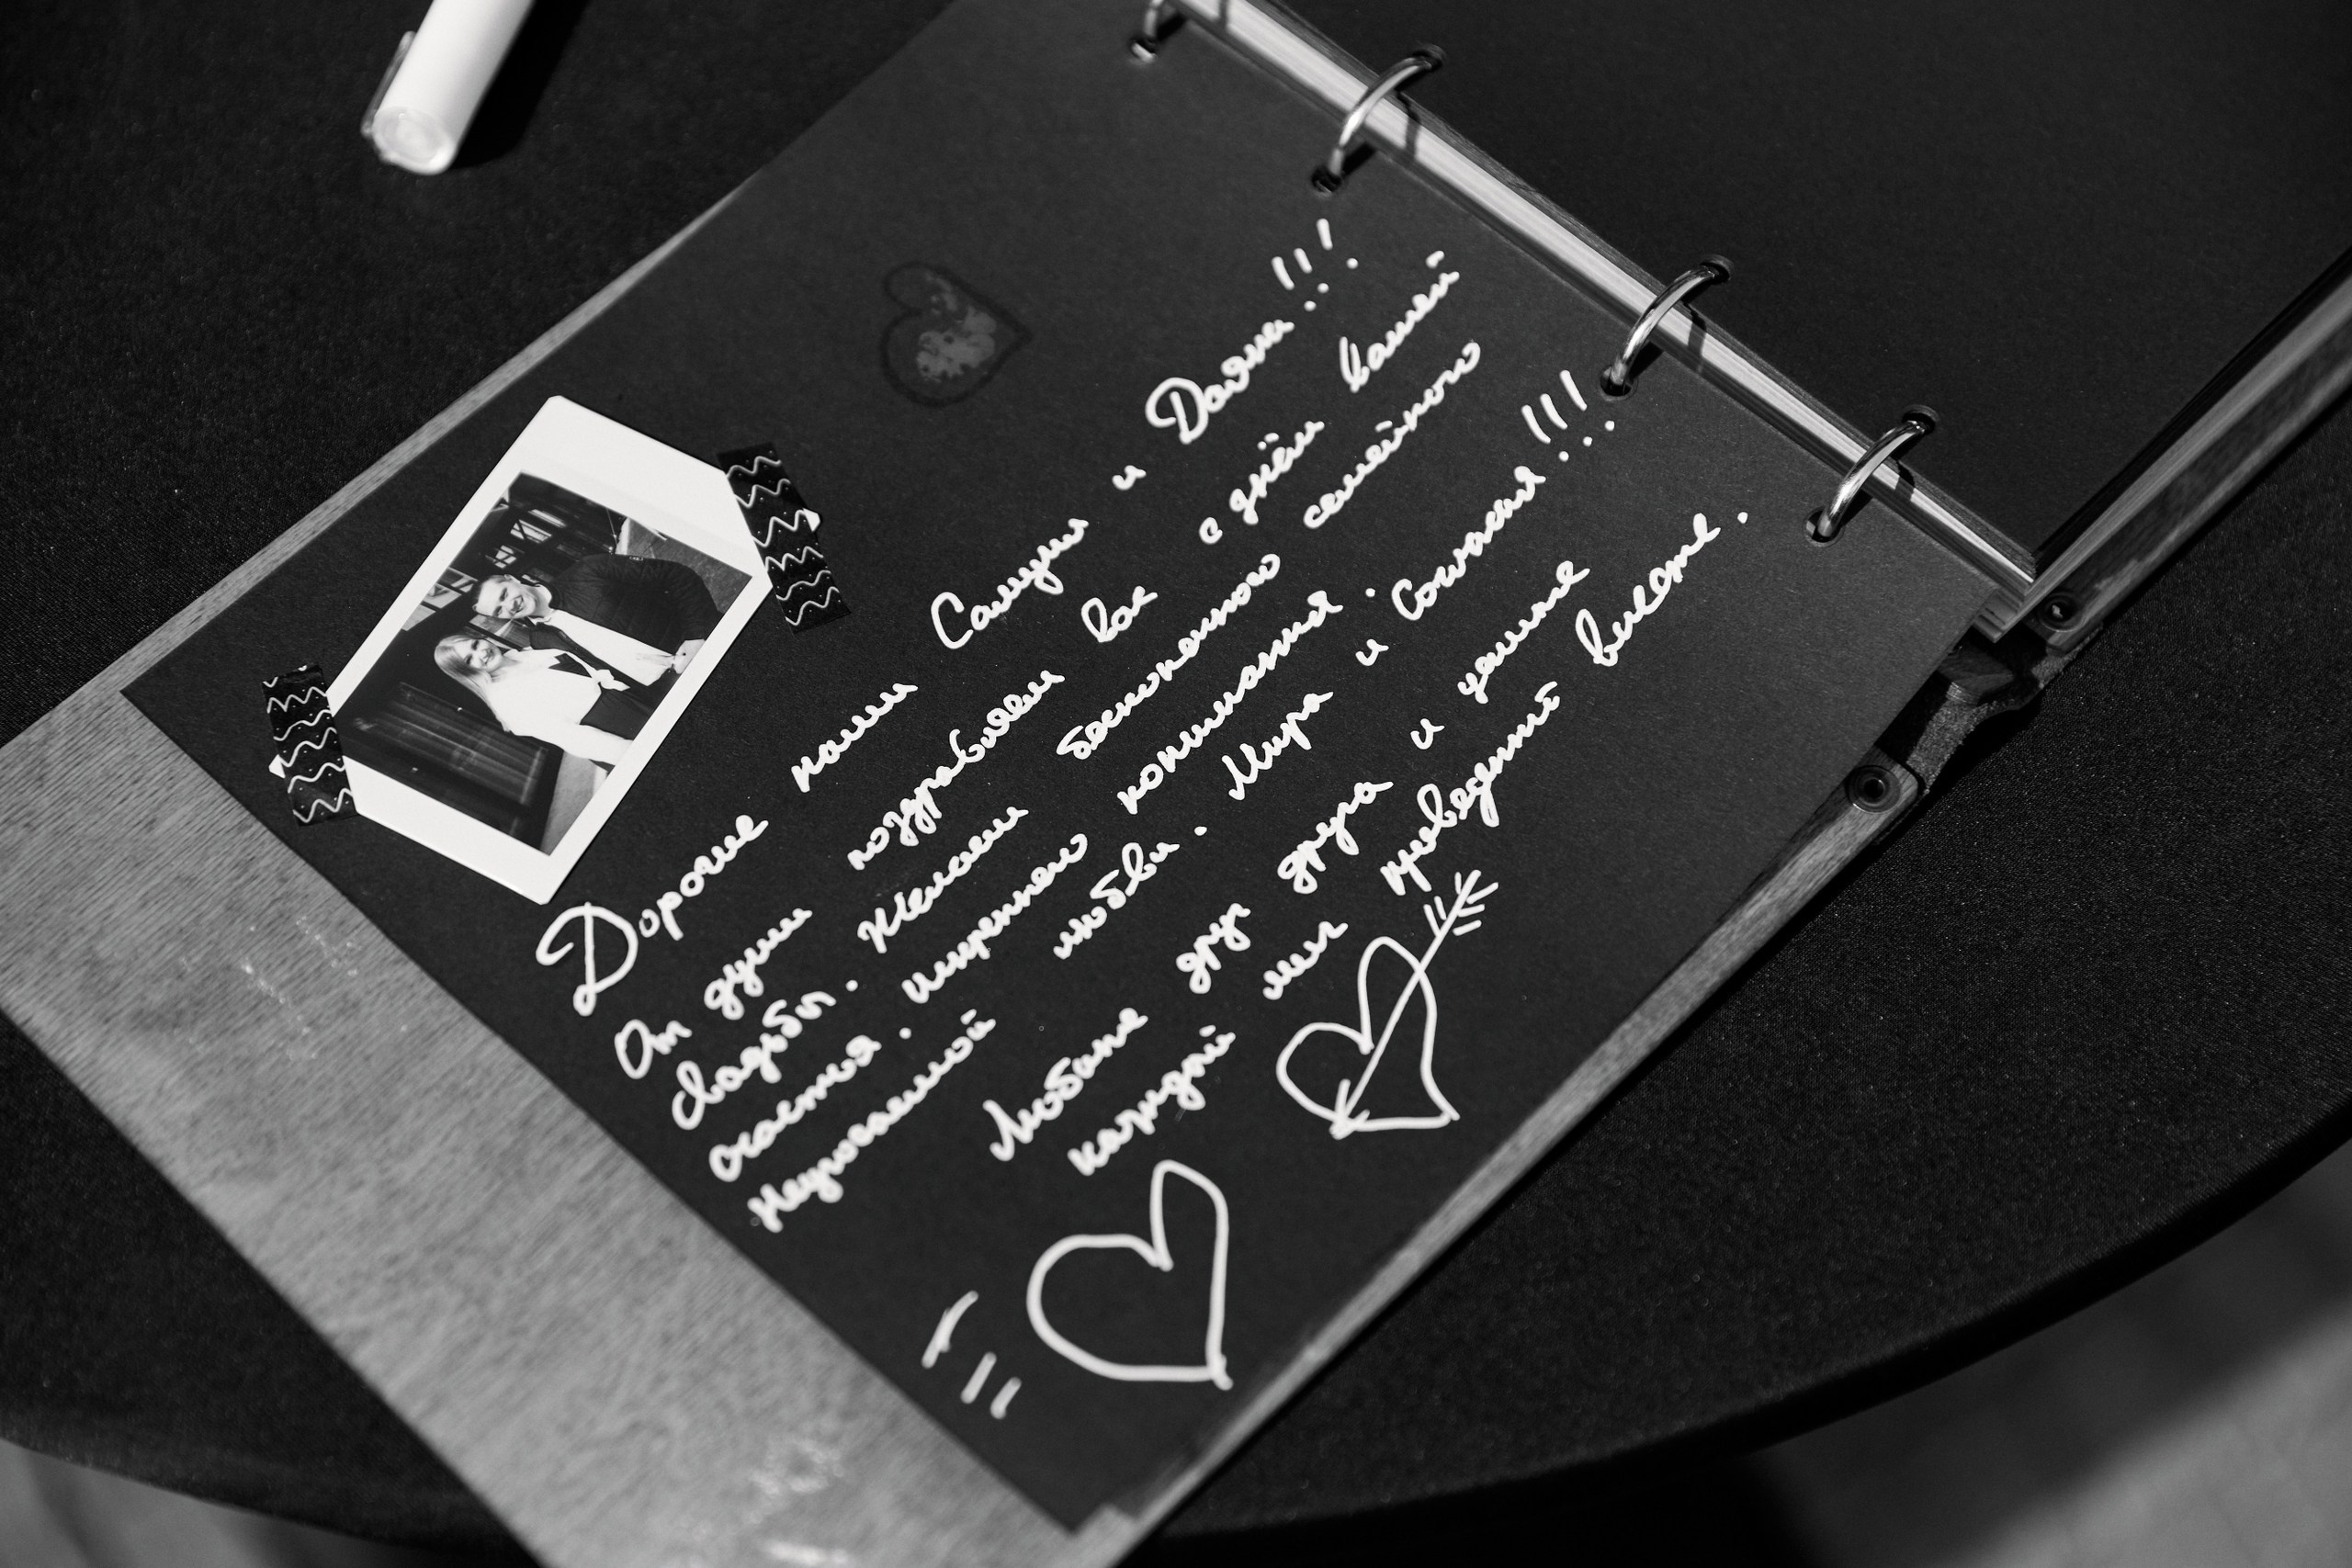 Дорогие наши Сашули и Даяна!!!
От души поздравляем вас с днём вашей
свадьбы. Желаем бесконечного семейного
счастья, искреннего понимания,
Неугосающей любви. Мира и Согласия!!!
Любите друг друга и цените
каждый миг проведенный вместе.